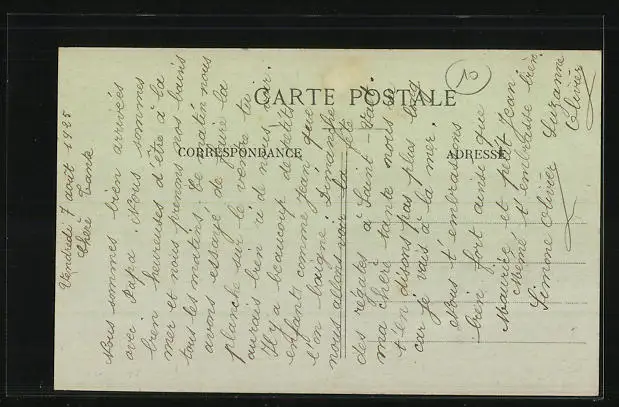 CARTE POSTALE
CORRESPONDANCE
ADRESSE
Vendredi 7 août 1925
Chère Tante
Nous sommes bien arrivées
avec Papa. Nous sommes
bien heureuses d'être à la
mer et nous prenons nos bains
tous les matins. Ce matin nous
avons essayé de faire la
planche sur le ventre tu
aurais bien ri de nous voir.
Il y a beaucoup de petits
enfants comme Jean que
l'on baigne. Dimanche
nous allons voir la fête
des régates à Saint-Vaast.
ma chère tante nous
t'en disons pas plus long
car je vais à la mer.
Nous t'embrassons
bien fort ainsi que
Maurice et petit Jean
Mémé t'embrasse bien
Simone Olivier Suzanne
Olivier